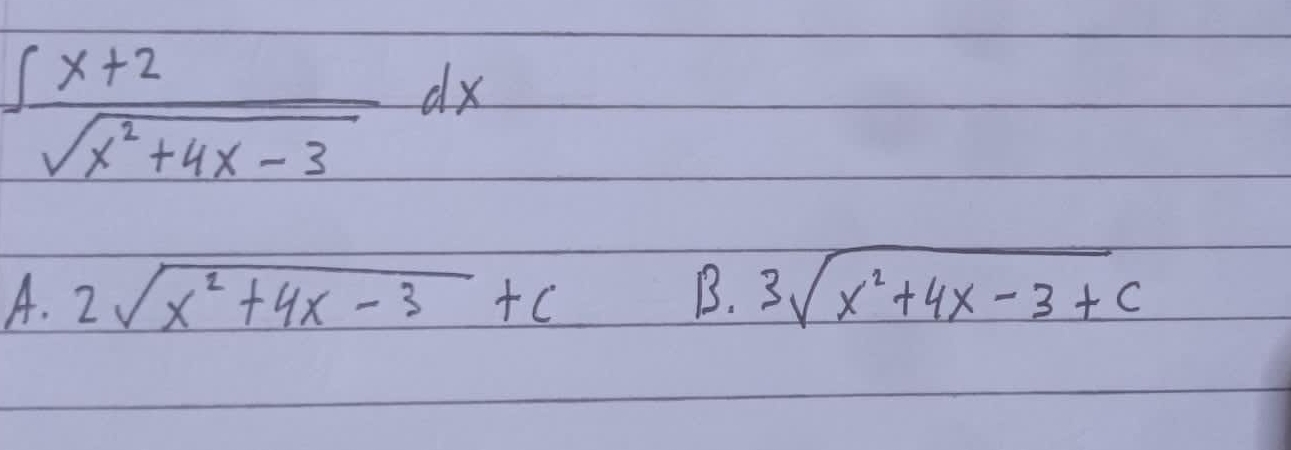 ∫ x+2 / √(x²+4x-3) dx
A. 2√(x²+4x-3) +c B. 3√(x²+4x-3+c)